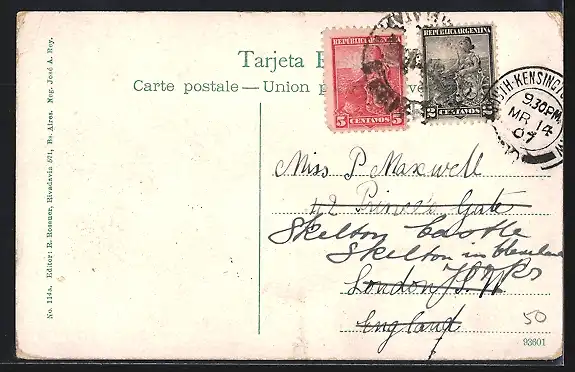 Tarjeta
Carte postale — Union
REPUBLICA ARGENTINA
5 CENTAVOS 5
REPUBLICA ARGENTINA
CENTAVOS
SOUTH-KENSINGTON
9.30PM
MR 14
07
Miss P Maxwell
42 Prince's Gate
Skelton Castle
Skelton in Cleveland
London S.W
Yorks
England
50
93601
No. 114a. Editor: R. Rosauer, Rivadavia 571, Bs. Aires. Neg. José A. Rey.